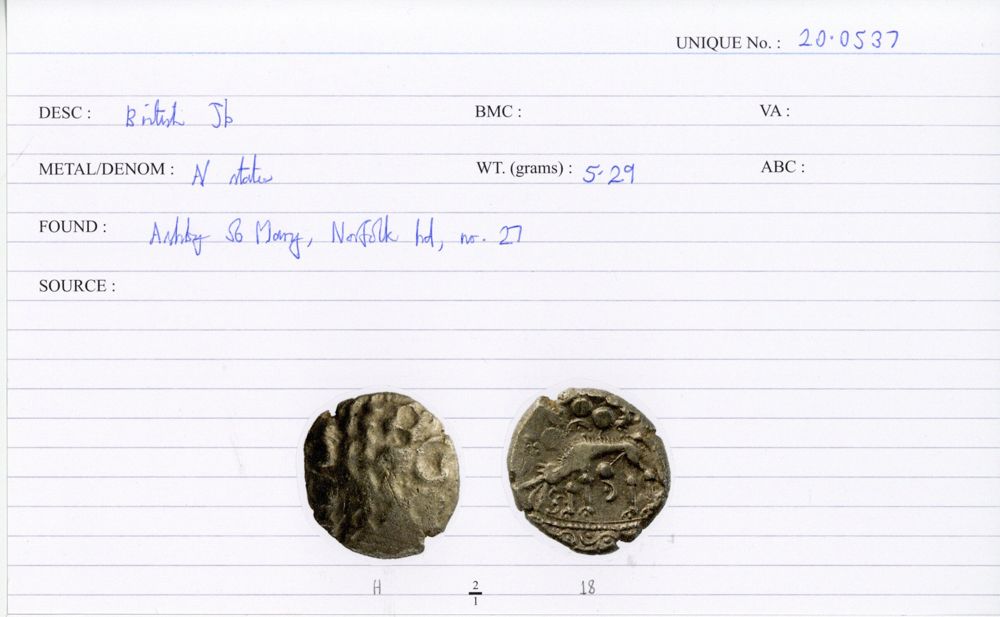 UNIQUE No. : 20·0537
DESC : British Jb BMC : VA :
METAL/DENOM : N stater WT. (grams) : 5·29 ABC :
FOUND : Ashby St Mary, Norfolk hd, no. 27
SOURCE :
H 2/1 18